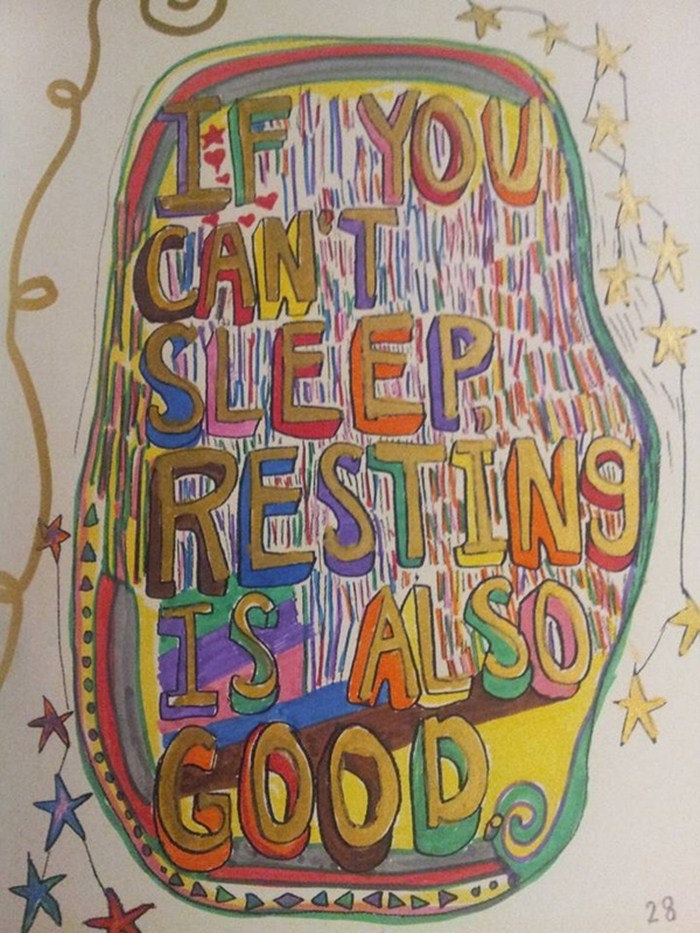 IF YOU
CAN'T
SLEEP,
RESTING
IS ALSO
GOOD.
28